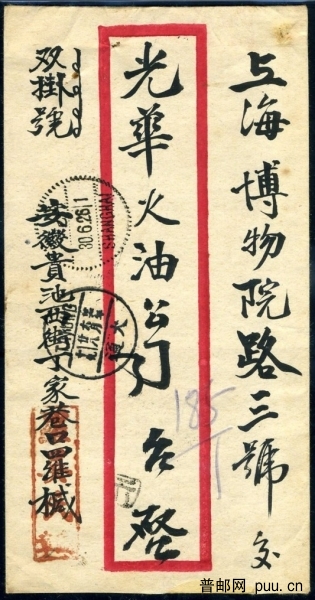 上海博物院路三號 交
光華火油公司 台啓
双掛號
安徽貴池西街丁家巷口羅械
SHANGHAI
30.6.26.11
大通
普邮网 puu.cn